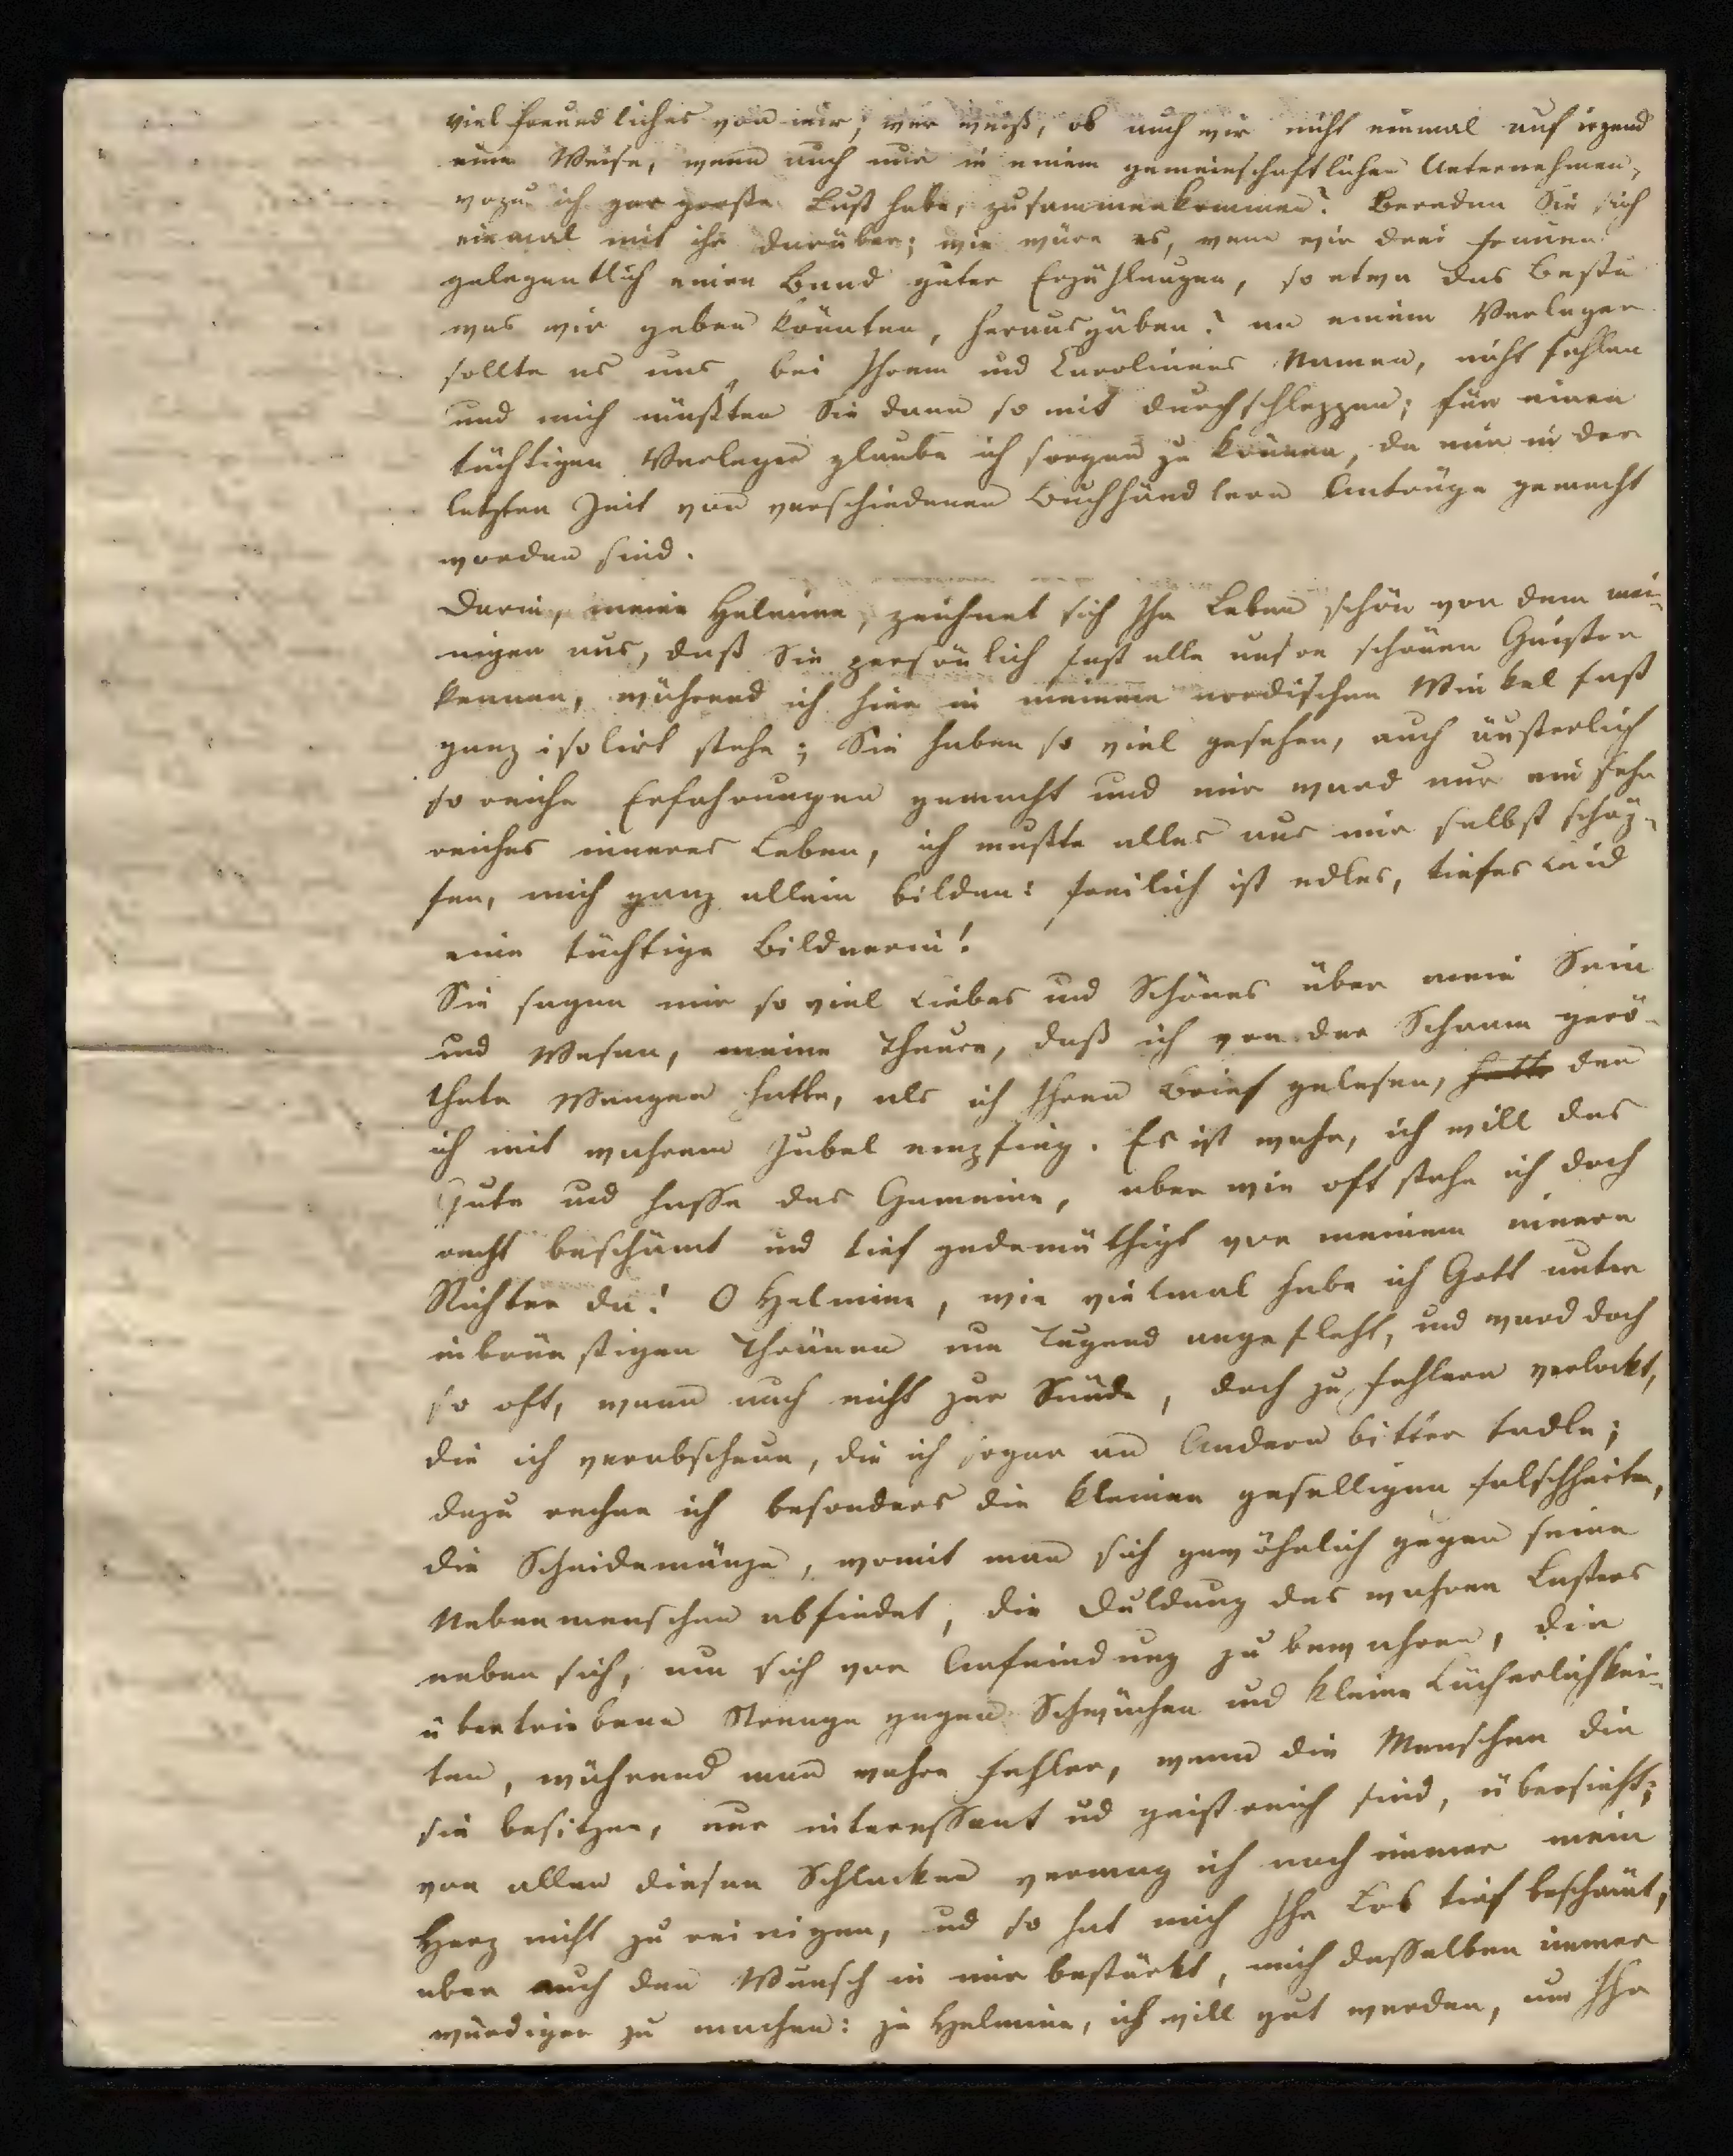 viel freundliches von mir; wer weiß, ob auch wir nicht einmal auf irgend
eine Weise, wenn auch nur in einem gemeinschaftlichen Unternehmen,
wozu ich gar große Lust habe, zusammenkommen? Bereden Sie sich
einmal mit ihr darüber; wie wäre es, wenn wir drei Frauen
gelegentlich einen Band guter Erzählungen, so etwa das Beste
was wir geben könnten, herausgäben? an einem Verleger
sollte es uns, bei Ihrem und Carolinens Namen, nicht fehlen
und mich müßten Sie dann so mit durchschleppen; für einen
tüchtigen Verleger glaube ich sorgen zu können, da mir in der
letzten Zeit von verschiedenen Buchhändlern Anträge gemacht
worden sind.
Darin, meine Helmine, zeichnet sich Ihr Leben schön von dem mei-
nigen aus, daß Sie persönlich fast alle unsre schönen Geister
kennen, während ich hier in meinem nordischen Winkel fast
ganz isolirt stehe; Sie haben so viel gesehen, auch äußerlich
so reiche Erfahrungen gemacht und mir ward nur ein sehr
reiches inneres Leben, ich mußte alles aus mir selbst schöp-
fen, mich ganz allein bilden: freilich ist edles, tiefes Leid
eine tüchtige Bildnerin!
Sie sagen mir so viel Liebes und Schönes über mein Sein
und Wesen, meine Theure, daß ich von der Scham gerö-
thete Wangen hatte, als ich Ihren Brief gelesen, hatte den
ich mit wahrem Jubel empfing. Es ist wahr, ich will das
Gute und hasse das Gemeine, aber wie oft stehe ich doch
recht beschämt und tief gedemüthigt vor meinem innern
Richter da! O Helmine, wie vielmal habe ich Gott unter
inbrünstigen Thränen um Tugend angefleht, und ward doch
so oft, wenn auch nicht zur Sünde, doch zu Fehlern verlockt,
die ich verabscheue, die ich sogar an Andern bitter tadle;
dazu rechne ich besonders die kleinen geselligen Falschheiten,
die Scheidemünze, womit man sich gewöhnlich gegen seine
Nebenmenschen abfindet, die Duldung des wahren Lasters
neben sich, um sich vor Anfeindung zu bewahren, die
übertriebene Strenge gegen Schwächen und kleine Lächerlichkei-
ten, während man wahre Fehler, wenn die Menschen die
sie besitzen, nur interessant ud geistreich sind, übersieht;
von allen diesen Schlacken vermag ich noch immer mein
Herz nicht zu reinigen, ud so hat mich Ihr Lob tief beschämt,
aber auch den Wunsch in mir bestärkt, mich desselben immer
würdiger zu machen: ja Helmine, ich will gut werden, um Ihr